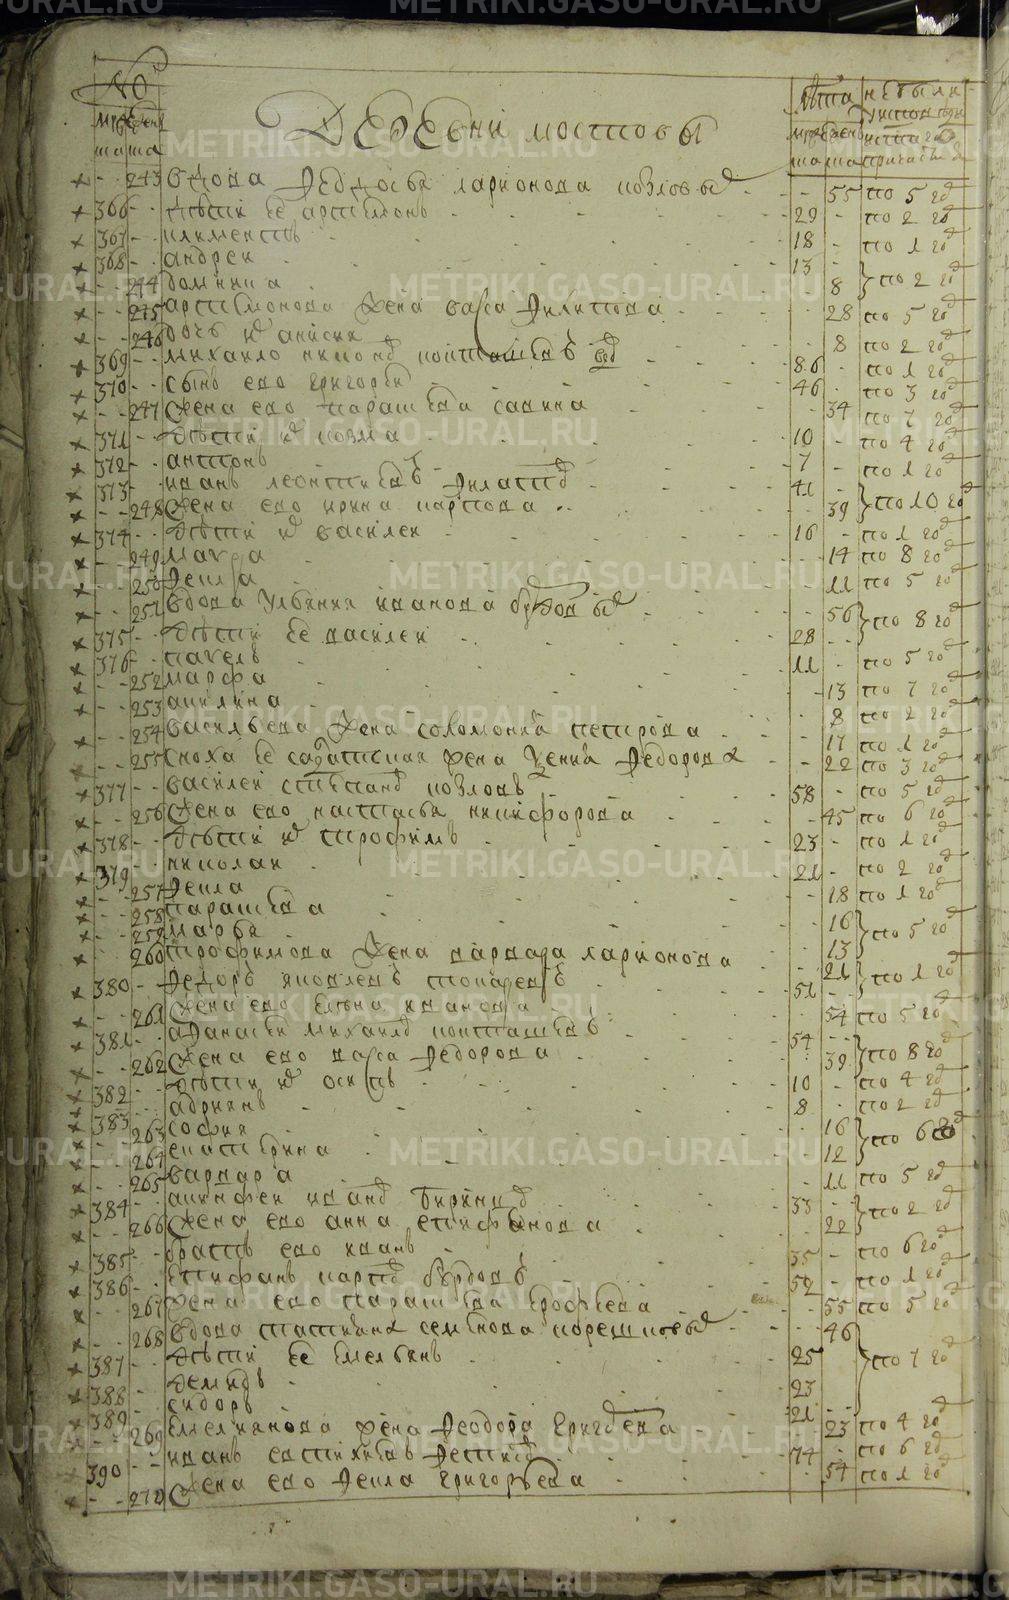 №
Деревни мостовы
лѣта
не были
243 вдова федосья ларионова козловых 55 по 5 го
366 дѣти ее артемонъ 29 по 2 го
367 климентъ 18 по 1 го
368 андреи 13
244 домникиа 8 по 2 го
245 артемонова жена васса филипова 28 по 5 го
246 дочь их анисия 8 по 2 го
369 михаило никонов поташевъ вд 86 по 1 го
370 сынъ ево григореи 46 по 3 го
247 жена ево парасковья савина 34 по 7 го
371 дѣти их козма 10 по 4 го
372 антонъ 7 по 1 го
373 иванъ леонтиевъ филатов 41
248 жена ево ирина карпова 39 по 10 го
374 дѣти их василеи 16 по 1 го
249 мавра 14 по 8 го
250 фекла 11 по 5 го
251 вдова улияния иванова бурдовых 56
375 дѣти ее василеи 28 по 8 го
376 павелъ 11 по 5 го
252 марфа 13 по 7 го
253 акилина 8 по 2 го
254 васильева жена соломонида петрова 17 по 1 го
255 сноха ее салдатцкая жена ксения федорова 22 по 3 го
377 василеи степанов козловъ 58 по 5 го
256 жена ево настасья никифорова 45 по 6 го
378 дѣти их трофимъ 23 по 1 го
379 николаи 21 по 2 го
257 фекла 18 по 1 го
258 парасковья 16
259 марья 13 по 5 го
260 трофимова жена варвара ларионова 21
380 федоръ яковлевъ токаревъ 51 по 1 го
261 жена ево елена иванова 54 по 5 го
381 афанасеи михаилов поташевъ 54
262 жена ево васса федорова 39 по 8 го
382 дѣти их осипъ 10 по 4 го
383 адриянъ 8 по 2 го
263 софия 16
264 екатерина 12 по 6 го
265 варвара 11 по 5 го
384 акинфеи иванов 33
266 жена ево анна епифанова 22 по 2 го
385 братъ ево иванъ 35 по 6 го
386 епифанъ карпов бурдовъ 52 по 1 го
267 жена ево парасковья ерофеева 55 по 5 го
268 вдова татияна семенова 46
387 дѣти ее емельянъ 25 по 7 го
388 демидъ 23
389 сидоръ 21
269 емелиянова жена феодора григорева 23 по 4 го
390 иванъ 74 по 6 го
270 жена ево фекла григорьева 54 по 1 го
METRIKI.GASO-URAL.RU